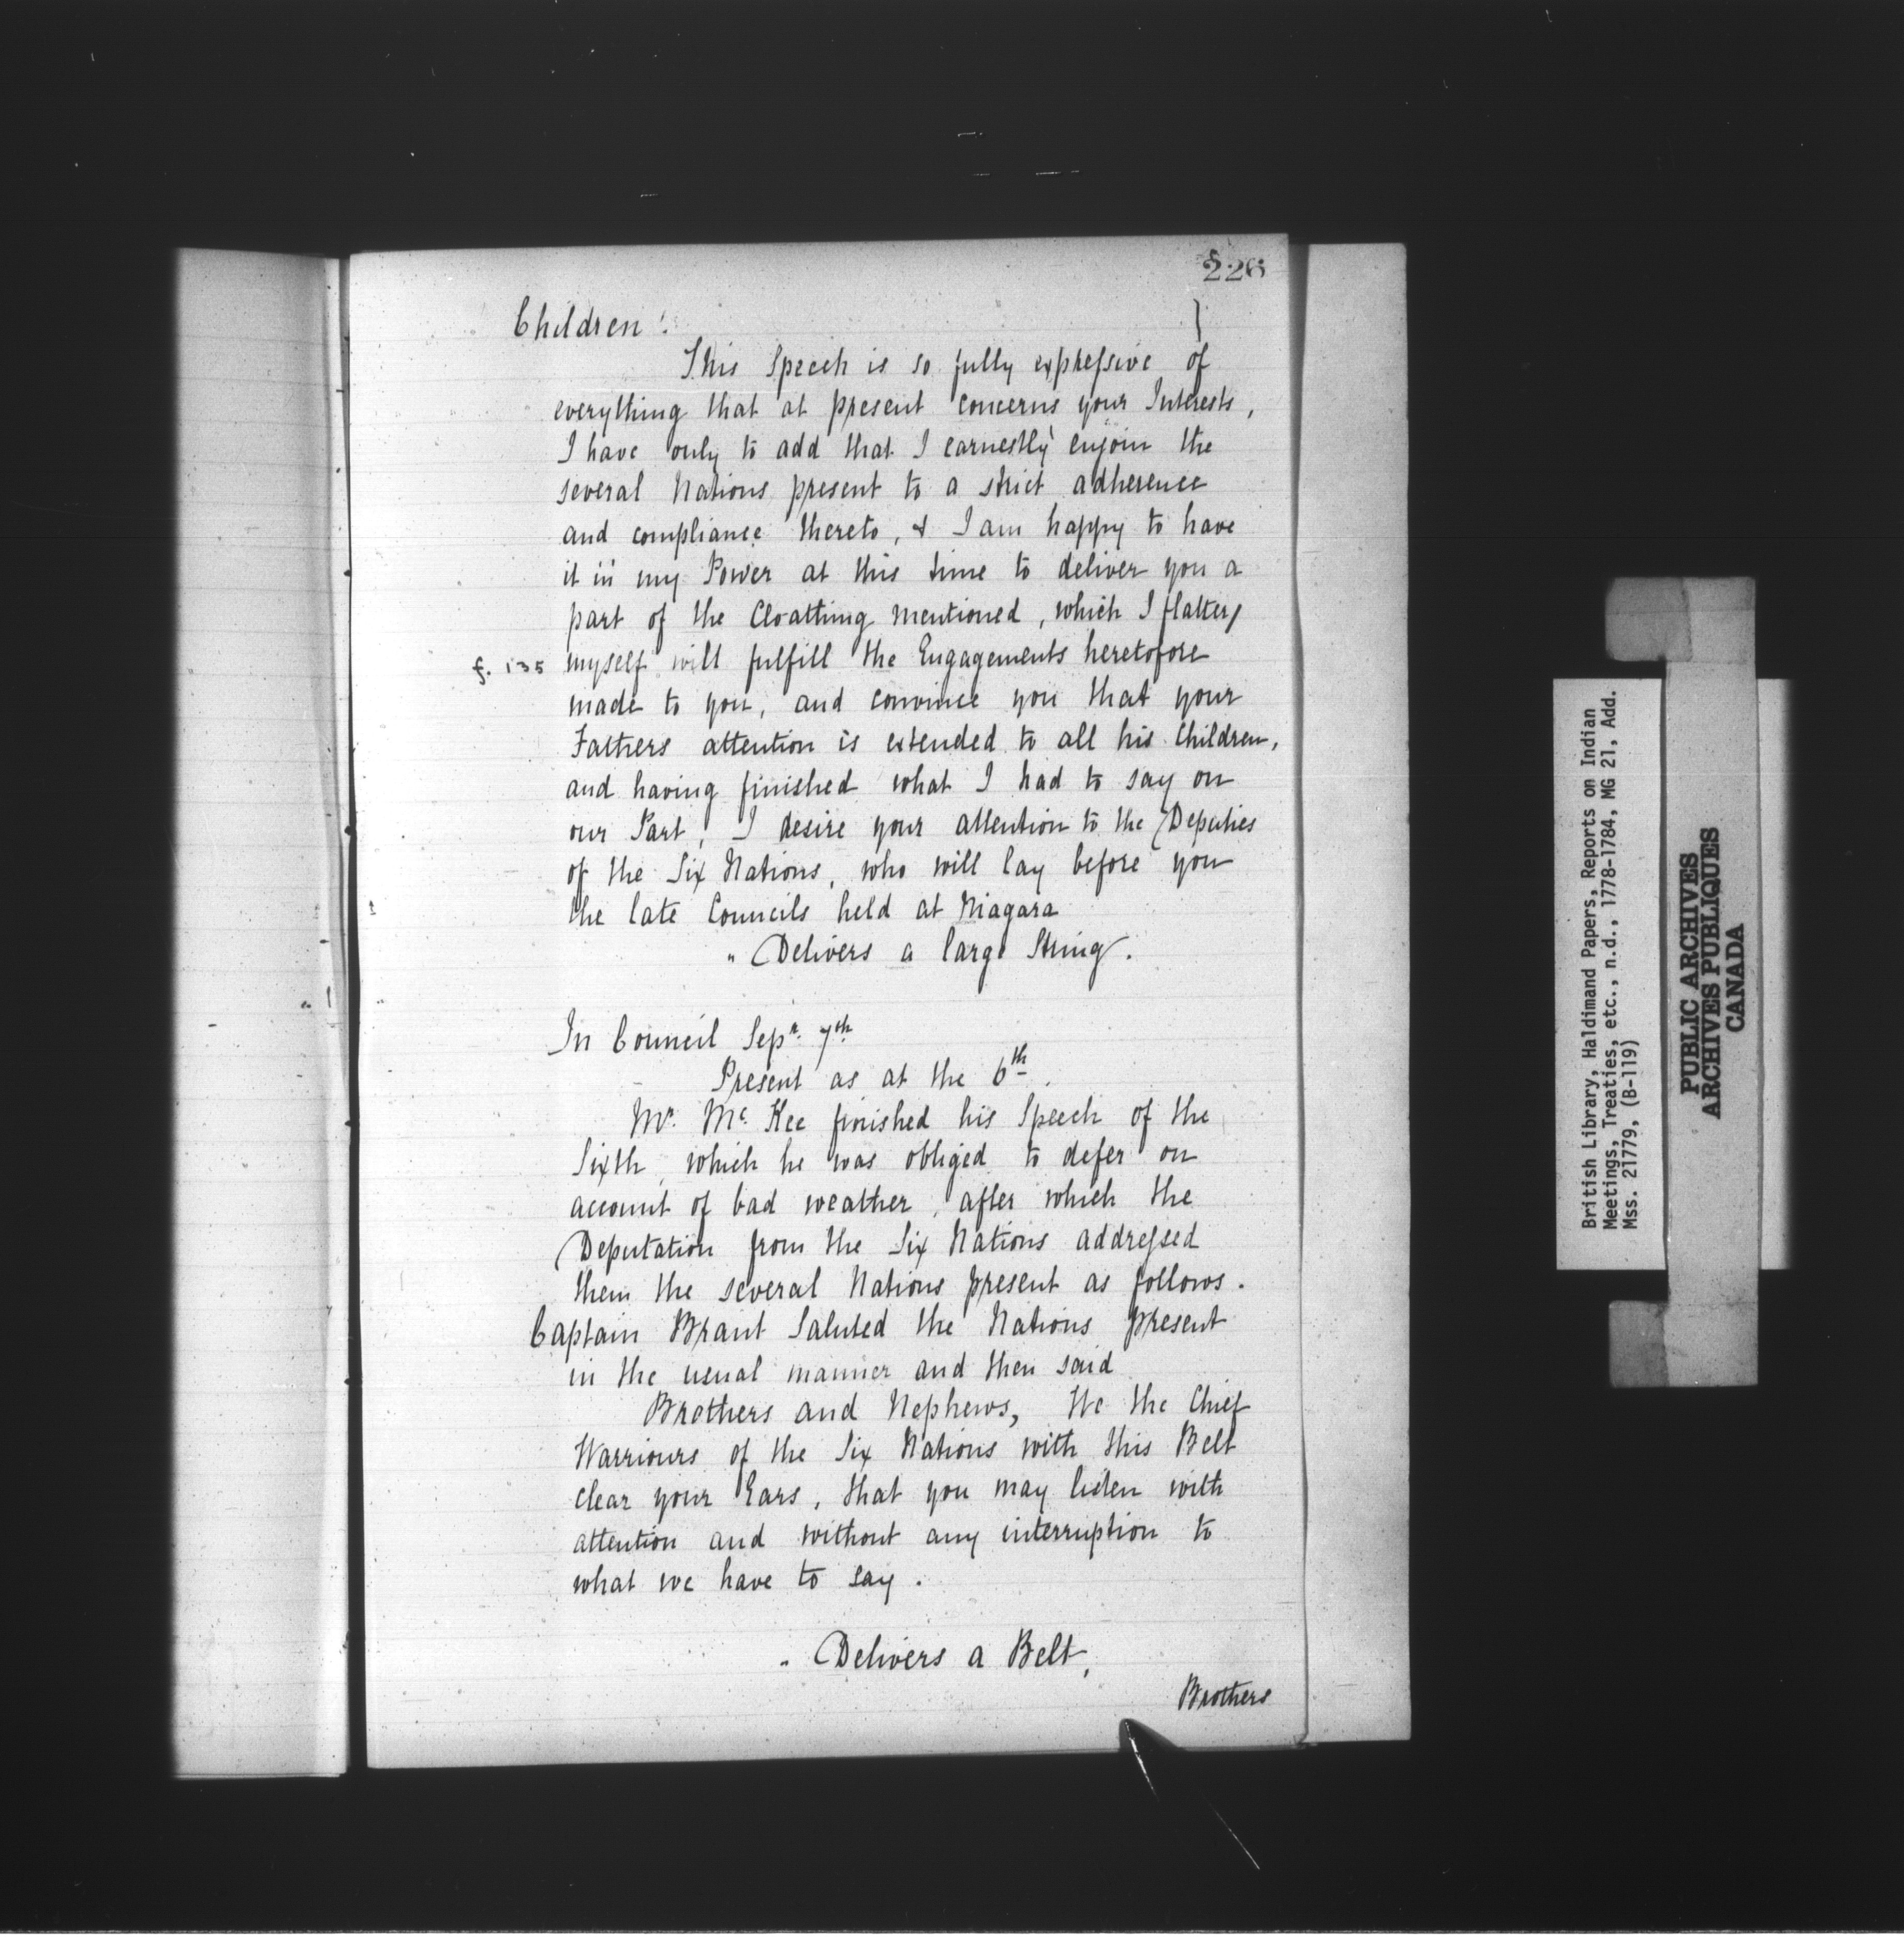 226
Children!
This Speech is so fully expreſsive of
everything that at present concerns your Interests,
I have only to add that I earnestly enjoin the
several Nations present to a strict adherence
and compliance thereto, & I am happy to have
it in my Power at this time to deliver you a
part of the Cloathing mentioned, which I flatter
f. 135 myself will fulfill the Engagements heretofore
made to you, and convince you that your
Fathers attention is extended to all his Children,
and having finished what I had to say on
our Part, I desire your attention to the Deputies
of the Six Nations, who will lay before you
the late Councils held at Niagara
" Delivers a large String.
In Council Sepr. 7th
Present as at the 6th.
Mr. Mc. Kee finished his Speech of the
Sixth, which he was obliged to defer on
account of bad weather, after which the
Deputation from the Six Nations addreſsed
them the several Nations present as follows.
Captain Brant Saluted the Nations present
in the usual manner and then said
Brothers and Nephews, We the Chief
Warriours of the Six Nations with this Belt
clear your Ears, that you may listen with
attention and without any interruption to
what we have to say.
" Delivers a Belt,
Brothers
British Library, Haldimand Papers, Reports on Indian
Meetings, Treaties, etc., n.d., 1778-1784, MG 21, Add.
Mss. 21779, (B-119)
PUBLIC ARCHIVES
ARCHIVES PUBLIQUES
CANADA